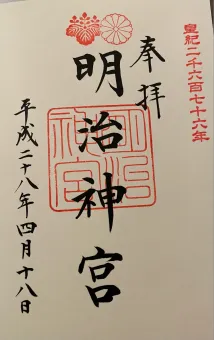 皇紀二千六百七十六年
奉拝
明治神宮
明治神宮
平成二十八年四月十八日